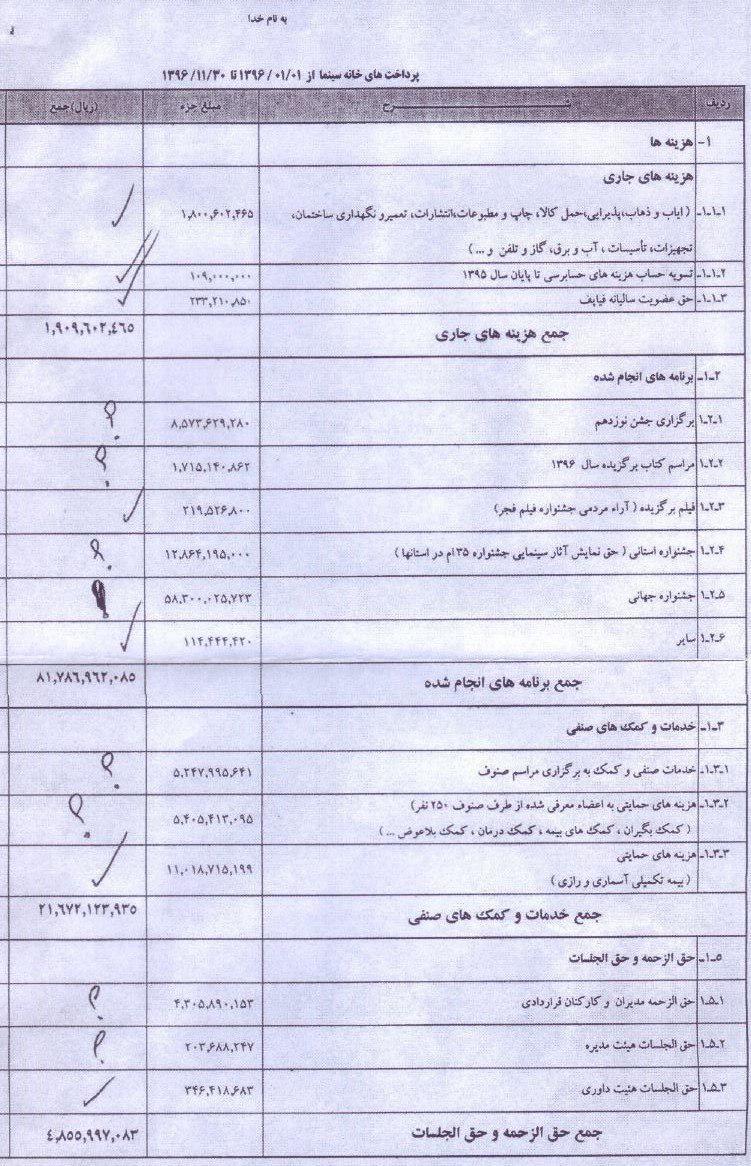 به نام خدا
پرداخت های خانه سینما از ۱۳۹۶/۰۱/۰۱ تا ۱۳۹۶/۱۱/۳۰
ردیف شرح مبلغ جزء (ریال)جمع
۱- هزینه ها
هزینه های جاری
۱-۱-۱ ( ایاب و ذهاب،پذیرایی،حمل کالا، چاپ و مطبوعات،انتشارات، تعمیرو نگهداری ساختمان، ۱,۸۰۰,۶۰۲,۴۶۵
تجهیزات، تأسیسات ، آب و برق، گاز و تلفن و ... )
۱-۱-۲ تسویه حساب هزینه های حسابرسی تا پایان سال ۱۳۹۵ ۱۰۹,۰۰۰,۰۰۰
۱-۱-۳ حق عضویت سالیانه فیاپف ۲۳۳,۲۱۰,۸۵۰
جمع هزینه های جاری ۱,۹۰۹,۶۰۲,۴۶۵
۱-۲- برنامه های انجام شده
۱-۲-۱ برگزاری جشن نوزدهم ۸,۵۷۳,۶۲۹,۲۸۰ ؟
۱-۲-۲ مراسم کتاب برگزیده سال ۱۳۹۶ ۱,۷۱۵,۱۴۰,۸۶۲ ؟
۱-۲-۳ فیلم برگزیده ( آراء مردمی جشنواره فیلم فجر) ۲۱۹,۵۲۶,۸۰۰
۱-۲-۴ جشنواره استانی ( حق نمایش آثار سینمایی جشنواره ۳۵ ام در استانها ) ۱۲,۸۶۴,۱۹۵,۰۰۰ ؟
۱-۲-۵ جشنواره جهانی ۵۸,۳۰۰,۰۲۵,۷۲۳
۱-۲-۶ سایر ۱۱۴,۴۴۴,۴۲۰
جمع برنامه های انجام شده ۸۱,۷۸۶,۹۶۲,۰۸۵
۱-۳- خدمات و کمک های صنفی
۱-۳-۱ خدمات صنفی و کمک به برگزاری مراسم صنوف ۵,۲۴۷,۹۹۵,۶۴۱ ؟
۱-۳-۲ هزینه های حمایتی به اعضاء معرفی شده از طرف صنوف ۲۵۰ نفر) ۵,۴۰۵,۴۱۳,۰۹۵ ؟
( کمک بگیران ، کمک های بیمه ، کمک درمان ، کمک بلاعوض ... )
۱-۳-۳ هزینه های حمایتی ۱۱,۰۱۸,۷۱۵,۱۹۹
( بیمه تکمیلی آسماری و رازی )
جمع خدمات و کمک های صنفی ۲۱,۶۷۲,۱۲۳,۹۳۵
۱-۵- حق الزحمه و حق الجلسات
۱-۵-۱ حق الزحمه مدیران و کارکنان قراردادی ۴,۳۰۵,۸۹۰,۱۵۳ ؟
۱-۵-۲ حق الجلسات هیئت مدیره ۲۰۳,۶۸۸,۲۴۷ ؟
۱-۵-۳ حق الجلسات هئیت داوری ۳۴۶,۴۱۸,۶۸۳
جمع حق الزحمه و حق الجلسات ۴,۸۵۵,۹۹۷,۰۸۳